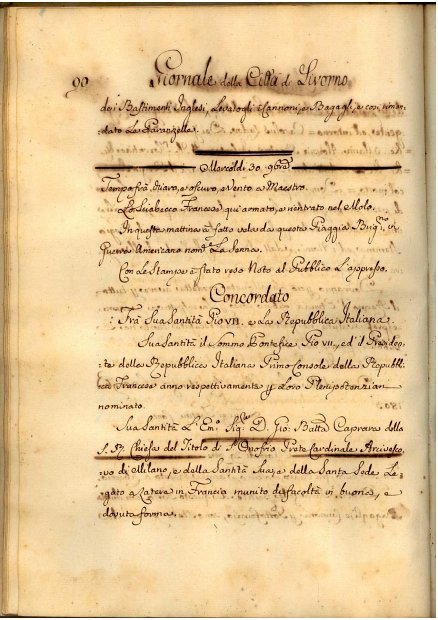 90 Giornale della Città di Livorno
dei Bastimenti Inglesi, Levatogli i Cannoni, e Bagagli, e con riman-
dato Le Paranzelle.
Mercoldì 30. 9bre
Tempo frà chiaro, e oscuro, e Vento a Maestro.
Lo Sciabecco Francese qui armato, è rientrato nel Molo.
In questa mattina à fatto vela da questa Piaggia Brigno in
Guerra Americano nomto La Jenna.
Con Le Stampe è stato reso Noto al Pubblico L'appresso.
Concordato
Trà Sua Santità Pio VII. e La Repubblica Italiana
Sua Santità il Sommo Pontefice Pio VII., ed il Presiden-
te della Repubblica Italiana Primo Console della Repubbli-
ca Francese anno respettivamente p loro Plenipotenziari
nominato.
Sua Santità L'Emo Sigre D. Gio: Batta Caprara della
S. R. Chiesa del Titolo di St Onofrio Prete Cardinale Arcivesco-
vo di Milano, e della Santità Sua, e della Santa Sede Le-
gato a Latere in Francia munito di facoltà in buona, e
dovuta forma.